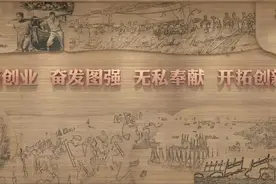 创业 奋发图强 无私奉献 开拓创